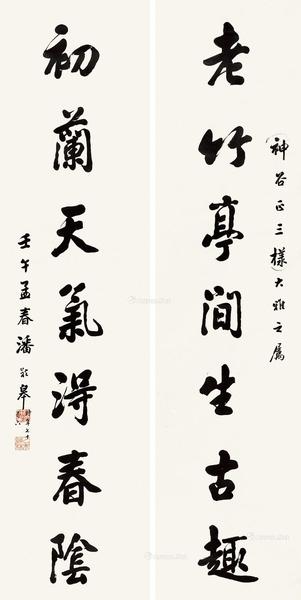 (神谷正三樣)大雅之屬
老竹亭澗生古趣
初蘭天氣淂春陰
壬午孟春潘齡皋